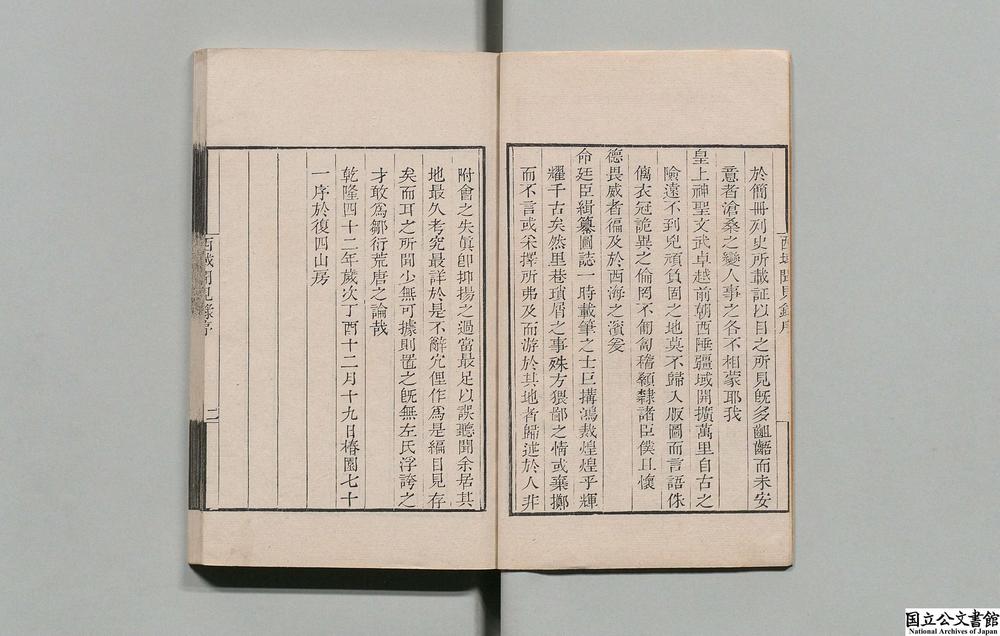 西域聞見錄序
於簡冊列史所載証以目之所見旣多齟齬而未安
意者滄桑之變人事之各不相蒙耶我
皇上神聖文武卓越前朝西陲疆域開擴萬里自古之
險遠不到兇頑負固之地莫不歸入版圖而言語侏
𠌯衣冠詭異之倫罔不匍匐稽顙隸諸臣僕且懷
德畏威者徧及於西海之濱爰
命廷臣緝纂圖誌一時載筆之士巨搆鴻裁煌煌乎輝
耀千古矣然里巷瑣屑之事殊方猥鄙之情或棄擲
而不言或采擇所弗及而游於其地者歸述於人非
附會之失眞卽抑揚之過當最足以誤聽聞余居其
地最久考究最詳於是不辭冗俚作爲是編目見存
矣而耳之所聞少無可據則置之旣無左氏浮誇之
才敢爲鄒衍荒唐之論哉
乾隆四十二年歲次丁酉十二月十九日椿園七十
一序於復四山房
西域聞見錄序
二
国立公文書館
National Archives of Japan